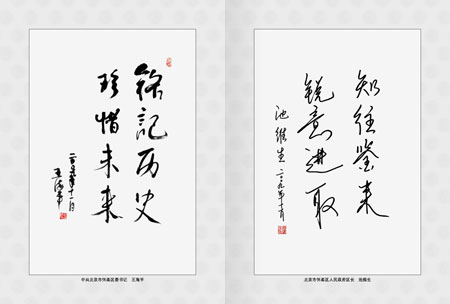 铭记历史
珍惜未来
二〇〇九年十一月
王海平
中共北京市怀柔区委书记 王海平
知往鉴来
锐意进取
池维生 二〇〇九年十月
北京市怀柔区人民政府区长 池维生